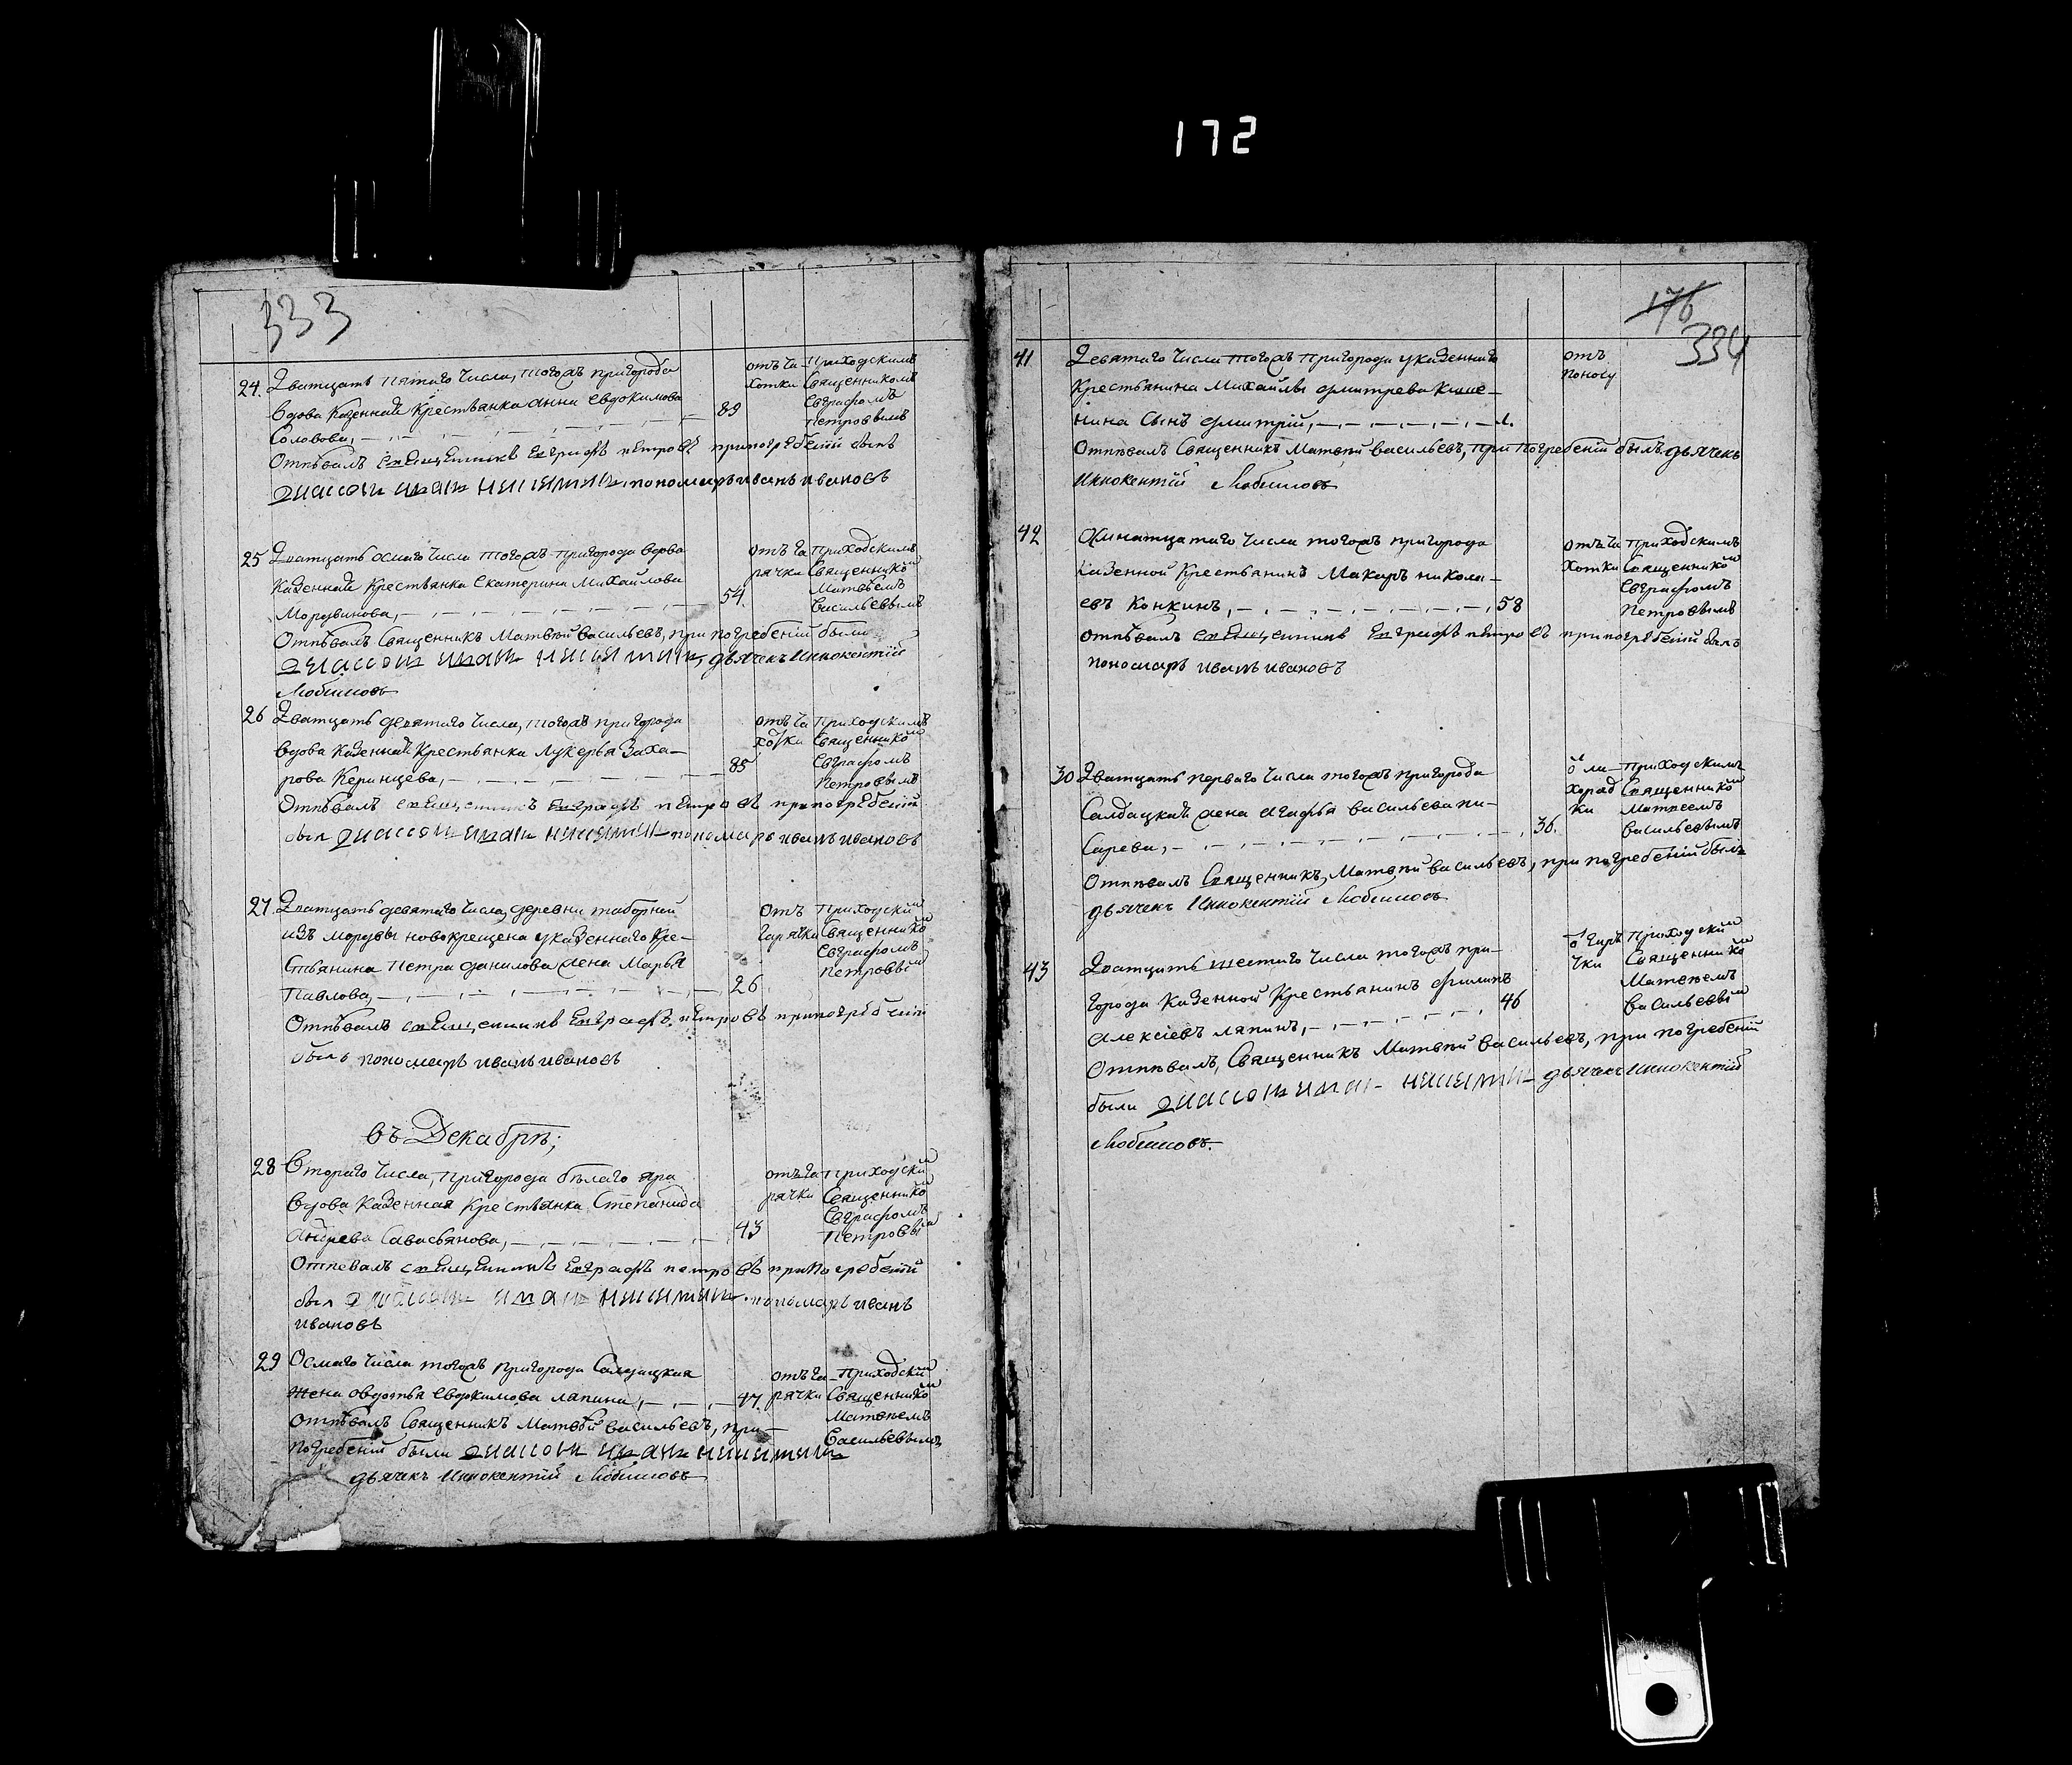 172
333
24. Дватцать пятаго числа, тогожъ пригорода
вдова казенная крестьянка анна евдокимова
Соловова, 89
отъ ча-
хотки
Приходскимъ
Священникомъ
Евграфомъ
петровымъ
Отпѣвалъ священникъ Евграфъ петровъ при погребеніи былъ
діаконъ иванъ никитинъ пономарь иванъ ивановъ
25 Дватцать осмаго числа тогожъ пригорода вдова
казенная крестьянка екатерина Михайлова
Мордвинова, 54.
отъ га
рячки
приходскимъ
Священнико
Матвѣемъ
Васильевымъ
Отпѣвалъ Священникъ Матвѣй васильевъ, при погребеніи были
діаконъ иванъ никитинъ, дьячекъ Иннокентій
Любимовъ
26 Дватцать девятаго числа, тогожъ пригорода
вдова казенная крестьянка Лукерья Заха-
рова Керинцева, 85
отъ ча
хотки
приходскимъ
Священнико
Евграфомъ
Петровымъ
Отпѣвалъ священникъ Евграфъ петровъ при погребеніи
был діаконъ иванъ никитинъ пономарь иванъ ивановъ
27. Дватцать девятаго числа, деревни таборней
изъ мордвы новокрещена указеннаго кре-
стьянина петра данилова жена Марья
Павлова, 26
отъ
гарячки
приходски
Священнико
Евграфомъ
петровы
Отпѣвалъ священникъ Евграфъ петровъ при погребеніи
былъ пономарь иванъ ивановъ
въ Декабрѣ;
28 Втораго числа, Пригорода бѣлаго яра
вдова казенная крестьянка Степанида
Андрева Савасьянова, 43
отъ га
рячки
приходски
Священнико
Евграфомъ
Петровы
Отпевалъ священникъ Евграфъ петровъ при погребеніи
был діаконъ иванъ никитинъ пономарь иванъ
ивановъ
29 Осмаго числа тогожъ пригорода Салдацкая
жена овдотья евдокимова лапина, 47.
отъ га-
рячки
Приходски
Священнико
Матвѣемъ
Васильевымъ
Отпѣвалъ Священникъ Матвѣй васильевъ, при
погребеніи были діаконъ иванъ никитинъ
дьячекъ Иннокентій Любимовъ
176
334
41 Девятаго числа тогожъ пригорода указеннаго
Крестьянина Михайлы дмитрева
нина сынъ дмитрій, 1.
отъ
поносу
Отпѣвалъ Священникъ Матвѣй васильевъ, при погребеніи былъ дьячекъ
Иннокентій Любимовъ
42 Одинатцатаго числа тогожъ пригорода
казенной крестьянинъ Макаръ никола-
евъ Конкинъ, 58
отъ ча
хотки
приходскимъ
Священнико
Евграфомъ
Петровымъ
отпѣвалъ священникъ Евграфъ петровъ при погребеніи былъ
пономарь иванъ ивановъ
30 Дватцать перваго числа тогожъ пригорода
Салдацкая жена агафья васильева пи-
сарева, 36.
о ли-
хорад
ки
приходскимъ
Священнико
Матвеемъ
васильевымъ
Отпѣвалъ Священникъ Матвѣй васильевъ, при погребеніи былъ
дьячекъ Иннокентій Любимовъ
43 Дватцать шестаго числа тогожъ при-
города казенной крестьянинъ филипъ
алексіевъ ляпинъ, 46
о гаря
чки
приходски
Священнико
Матвѣемъ
Васильевы
Отпѣвалъ, Священникъ Матвѣй васильевъ, при погребеніи
были діаконъ иванъ никитинъ дьячекъ Иннокентій
Любимовъ.